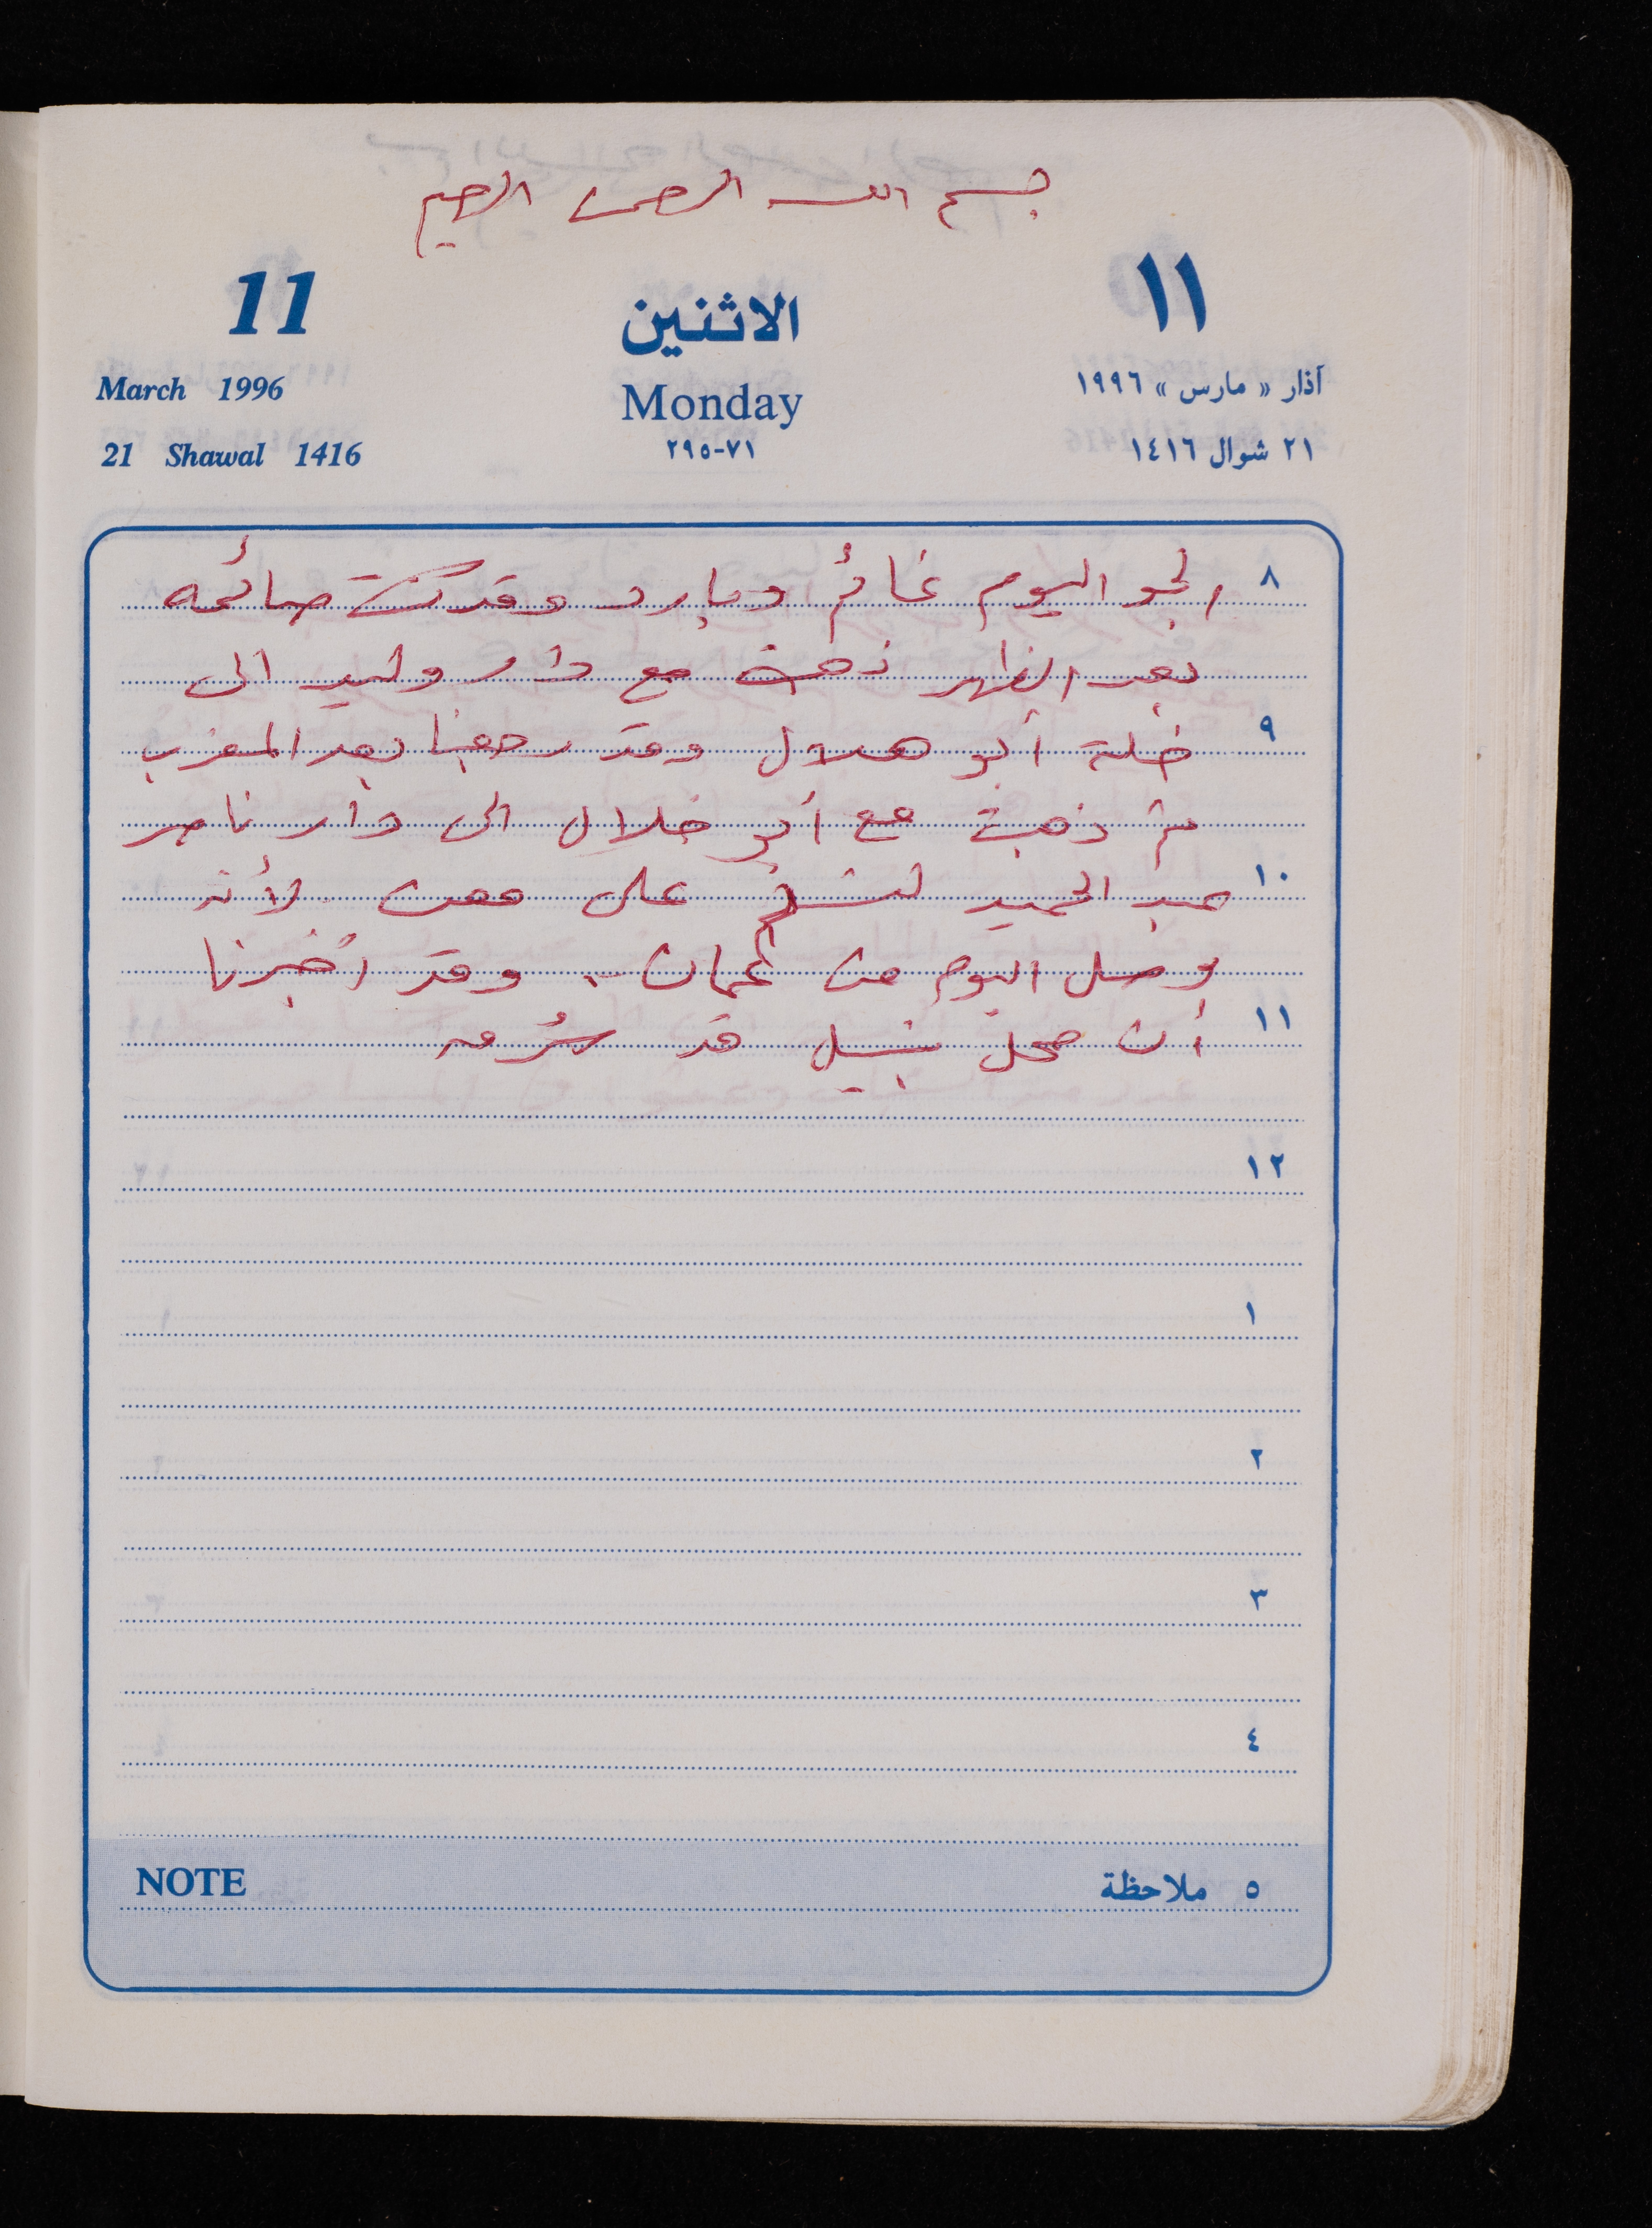 بسم الله الرحمن الرحيم
11 الاثنين ١١
March 1996 Monday آذار « مارس » ١٩٩٦
21 Shawal 1416 ٧١-٢٩٥ ٢١ شوال ١٤١٦
٨ الجو اليوم غائم وبارد وقد كنت صائمه
بعد الظهر ذهبت مع دار وليد الى
٩ خلة أبو هلال وقد رجعنا بعد المغرب
ثم ذهبت مع أبو خلال الى دار ناصر
١٠ عبد الحميد على معن لأنه
وصل اليوم من عمان . وقد أخبرنا
١١ أن محل نبيل قد
١٢
١
٢
٣
٤
NOTE ٥ ملاحظة